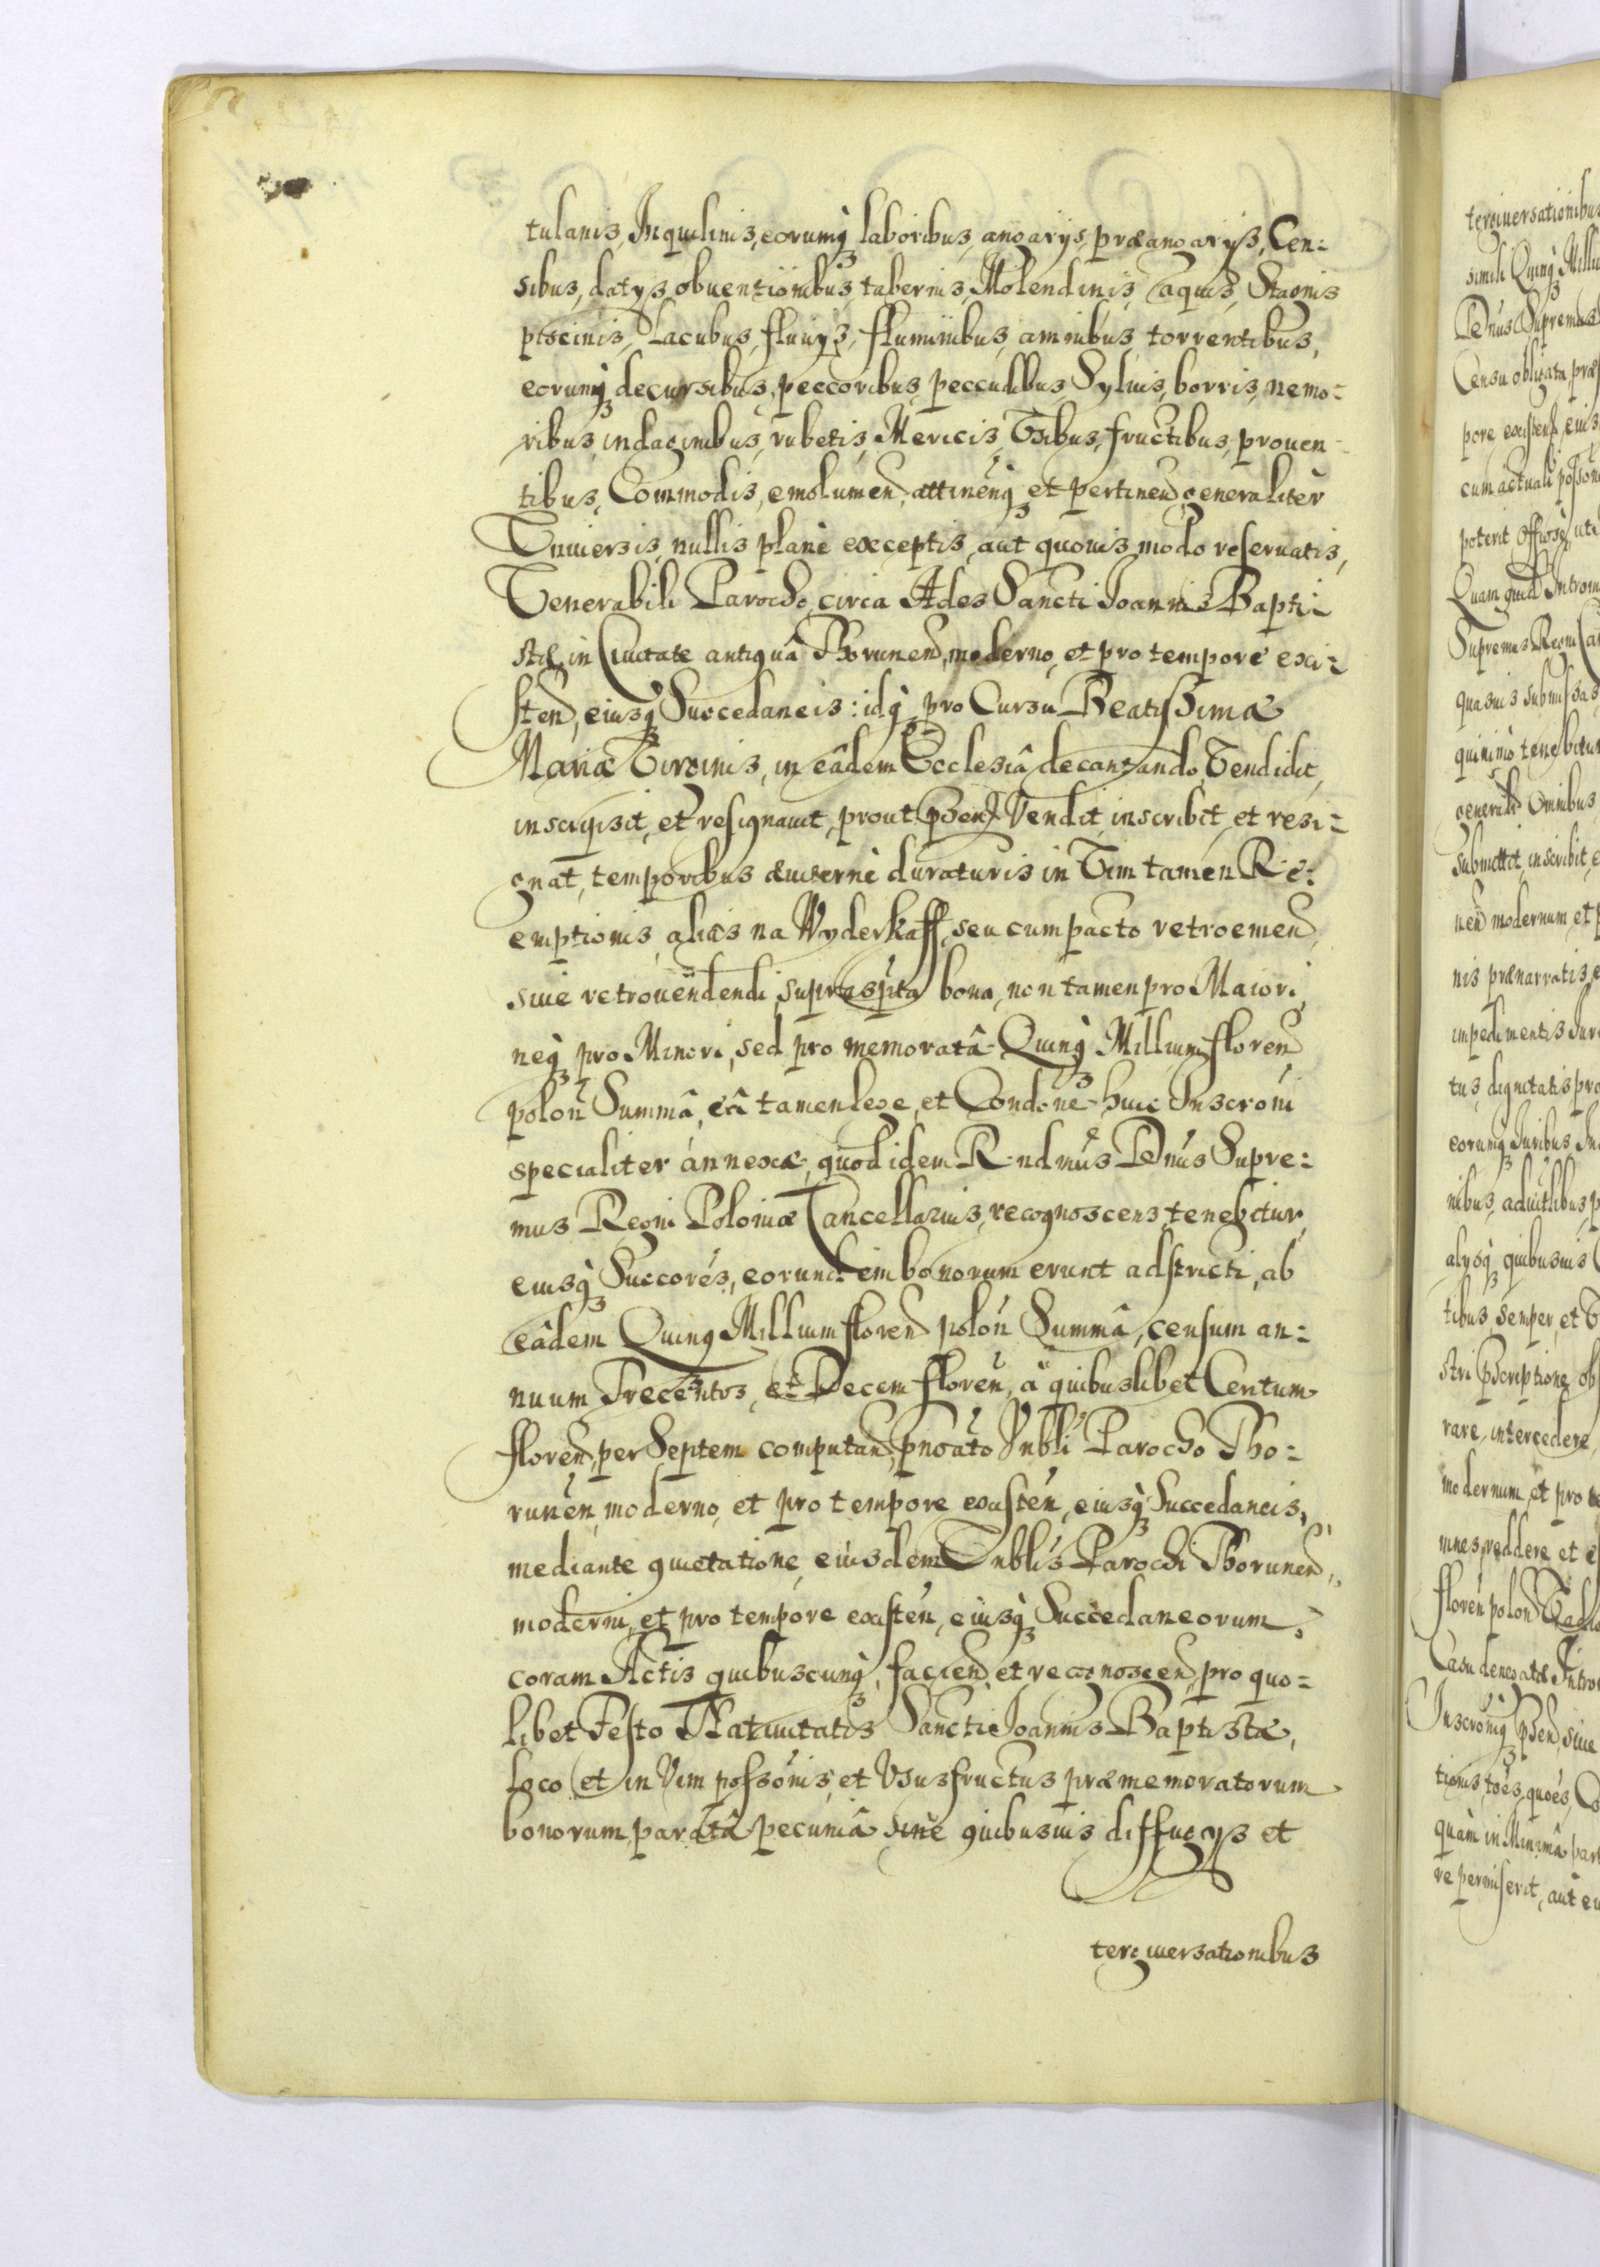 tulanis, Inquilinis, eorumq3 laboribus, angarijs, præangarijs, Cen:
sibus, datijs, obuentionibus, tabernis, Molendinis, aquis, Stagnis
piscinis, Lacubus, fluuijs, fluminibus, amnibus torrentibus,
eorumq3 decursibus, peccoribus, peccudibus Syluis, borris, nemo:
ribus, indaginibus, rubetis, Mericis, Vsibus, fructibus, prouen-
tibus, Commodis, emolumen, attinenq3 et pertinen, generaliter
Vniuersis, nullis planè exceptis, aut quouis modo reseruatis,
Venerabili Parocho, circa Ædes Sancti Joannis Bapti:
stæ, in Ciuitate antiquâ Thorunen, moderno, et pro tempore exi:
sten, eiusq3 Succedaneis: idq3 pro Cursu Beatissimæ
Mariæ Virginis, in eâdem Ecclesiâ decantando, Vendidit,
inscripsit, et resignauit, prout psen Vendit, inscribit, et resi:
gnat, temporibus æuiternè duraturis in Vim tamen Re:
emptionis, aliàs na Wyderkaff, seu cum pacto retroemen,
siue retrouendendi, suprascripta bona, non tamen pro Maiori,
neq3 pro Minori, sed pro memoratâ Quinq3 Millium floren
polon Summâ, eâ tamen lege, et Condone huic Inscroni
specialiter annexæ, quod idem R-ndmus Dnus Supre:
mus Regni Poloniæ Cancellarius, recognoscens, tenebitur,
eiusq3 Succores, eorundem bonorum erunt adstricti, ab
eâdem Quinq3 Millium floren polon Summâ, censum an:
nuum Trecentos, et Decem floren, à quibuslibet Centum
floren, per Septem computan, pnoato Vnbli Parocho Tho:
runen, moderno, et pro tempore existen, eiusq3 Succedaneis,
mediante quietatione, eiusdem Vnblis Parochi Thorunen,
moderni, et pro tempore existen, eiusq3 Succedaneorum,
coram Actis quibuscunq3, facien, et recognoscen, pro quo:
libet Festo Natiuitatis Sancti Joannis Baptistæ,
loco, et in Vim possonis, et Vsusfructus præmemoratorum
bonorum, paratâ pecuniâ sine quibusuis diffugijs et
tergiuersationibus
tergiuersationibus
simili Quinq3
Dnus Supremus
Censu obligata
cum actuali
poterit
Supremus Regni
quasuis submissas
quinimò tenebitur
Omnibus
submittit inscribit,
nen modernum et
nis prænarratis,
impedimentis
tus, dignitatis
eorumq3 Juribus
quibusuis
tibus, semper, et
rare, intercedere,
modernum, et pro
floren polon
quàm in Minimâ
re permiserit, aut